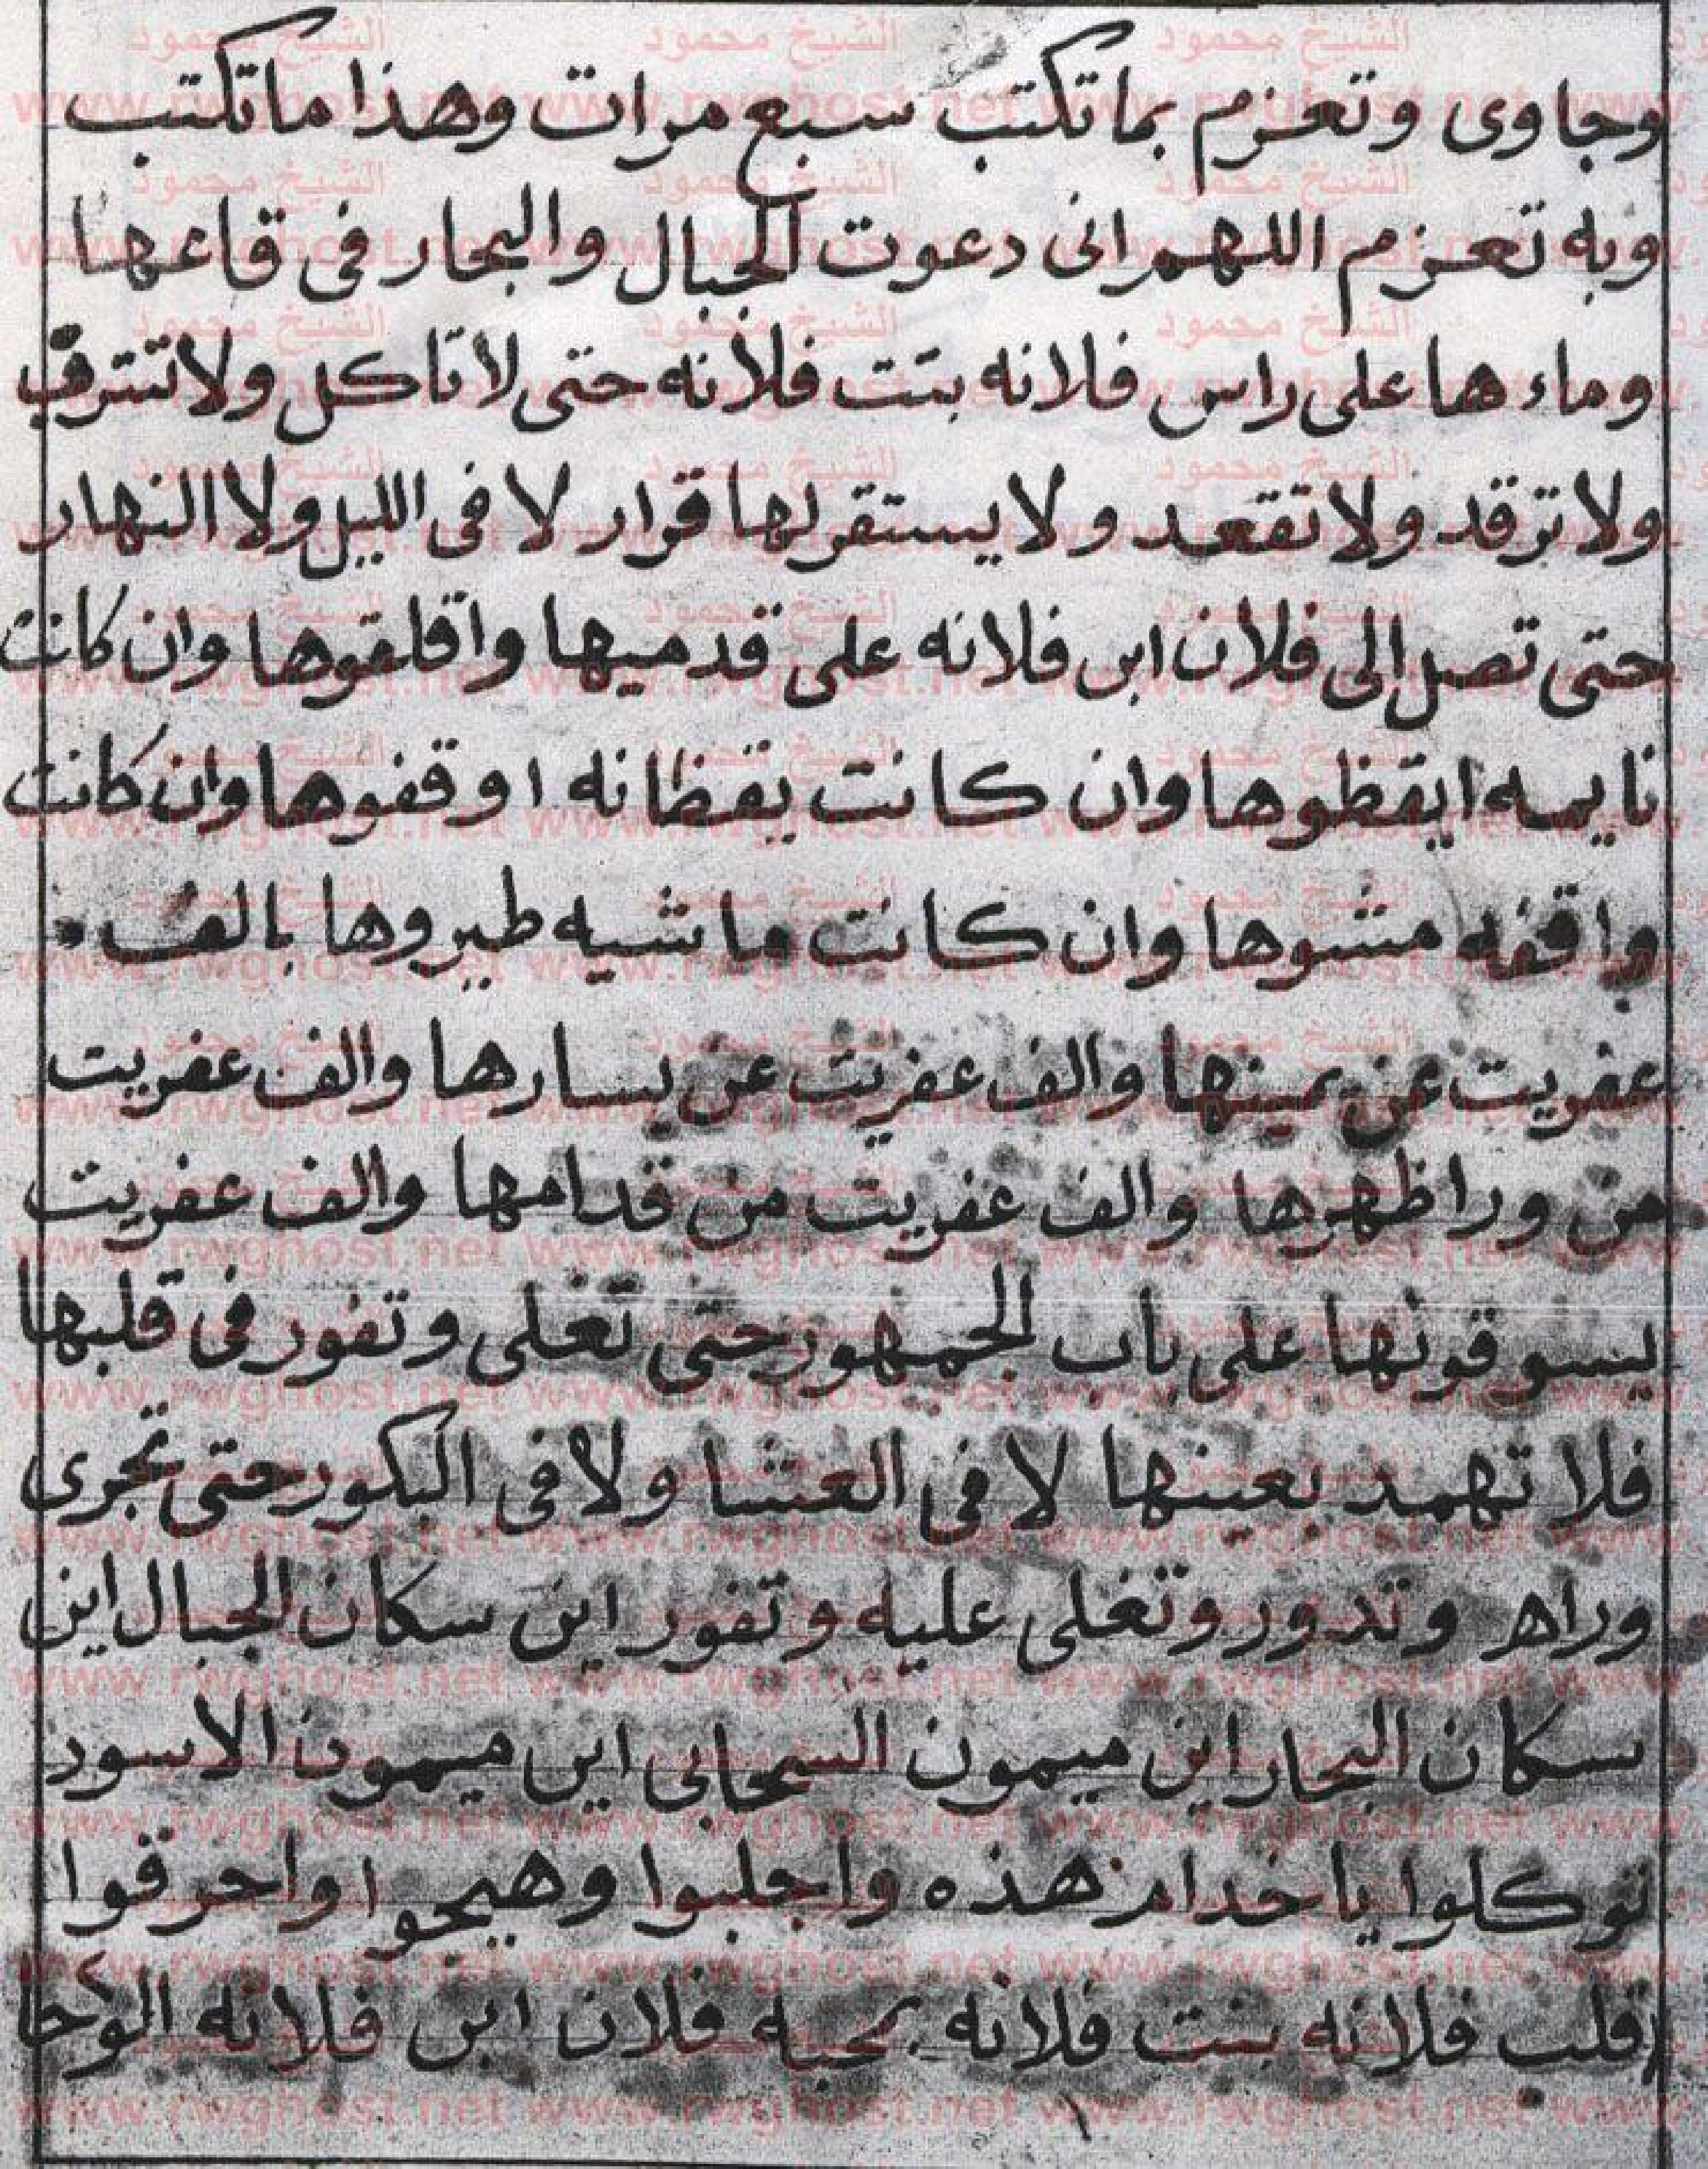 وجاوى وتعزم بما تكتب سبع مرات وهذا ما تكتب
وبه تعزم اللهم انى دعوت الجبال والبحار فى قاعها
وماءها على راس فلانه بنت فلانه حتى لا تاكل ولا تشرب
ولا ترقد ولا تقعد ولا يستقر لها قرار لا فى الليل ولا النهار
حتى تصل الى فلان ابن فلانه على قدميها واقلقوها وان كانت
نايمه ايقظوها وان كانت يقظانه اوقفوها وان كانت
واقفه مشوها وان كانت ماشيه طيروها بالف
عفريت عن يمينها والف عفريت عن يسارها والف عفريت
من ورا ظهرها والف عفريت من قدامها والف عفريت
يسوقونها على باب الجمهور حتى تغلى وتفور فى قلبها
فلا تهمد بعينها لا فى العشا ولا فى البكور حتى تجرى
وراه وتدور وتغلى عليه وتفور اين سكان الجبال اين
سكان البحار اين ميمون السحابى اين ميمون الاسود
توكلوا يا خدام هذه واجلبوا وهيجوا واحرقوا
قلب فلانه بنت فلانه بمحبه فلان ابن فلانه الوحا
الشيخ محمود
www.rwghost.net